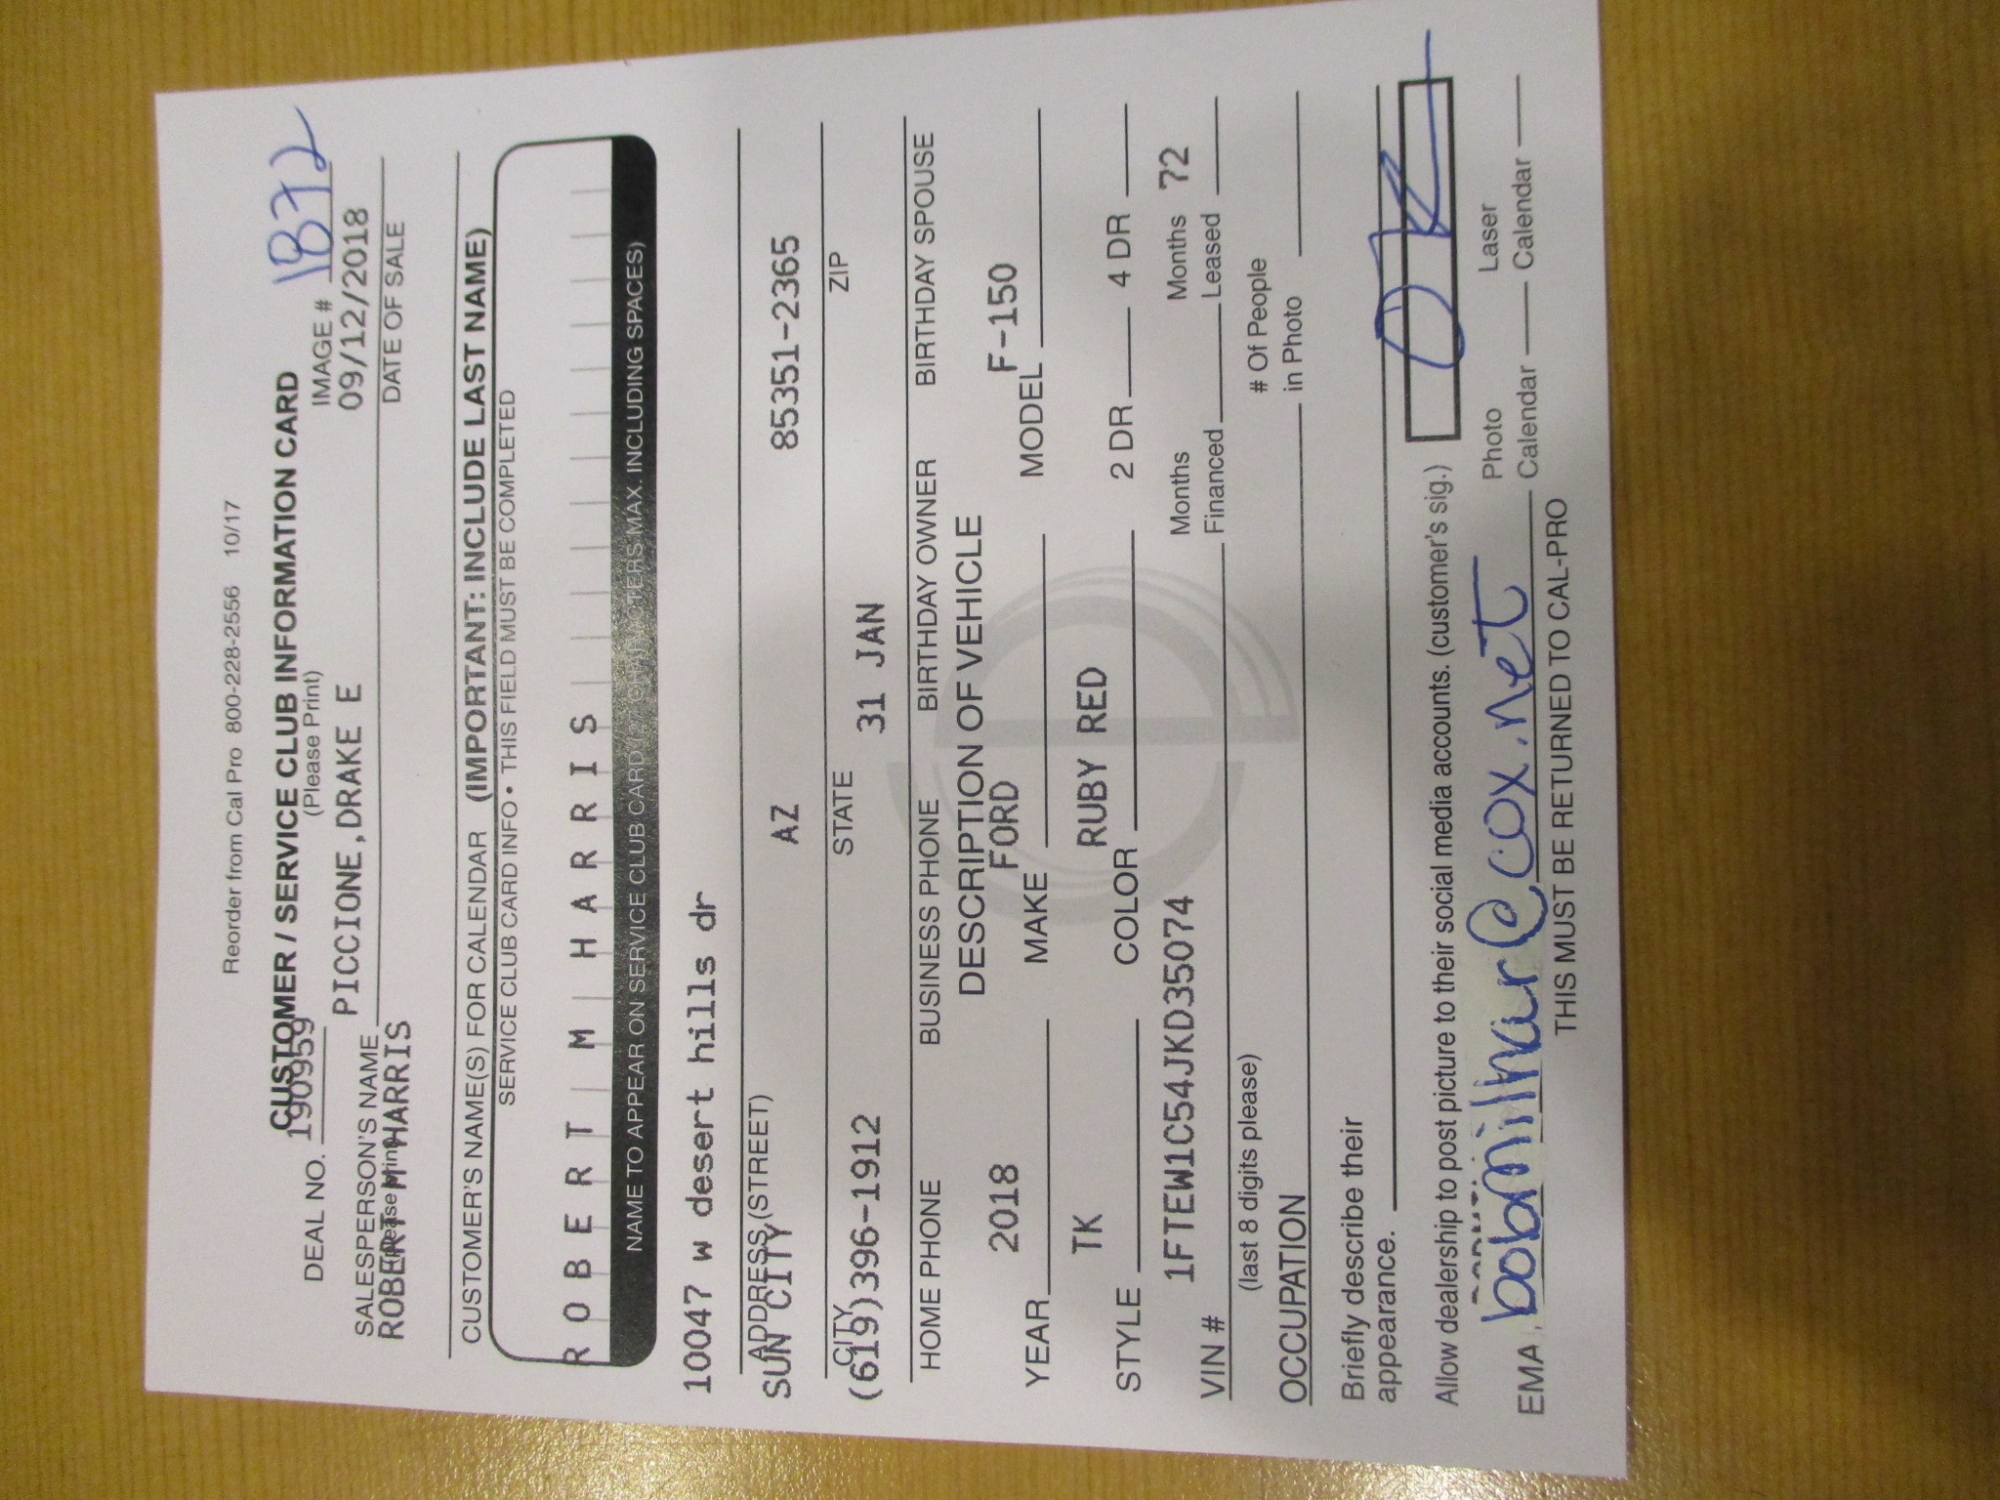 Reorder from Cal Pro 800-228-2556 10/17
CUSTOMER / SERVICE CLUB INFORMATION CARD
(Please Print)
DEAL NO. 190959 IMAGE # 1B72
PICCIONE,DRAKE E 09/12/2018
SALESPERSON'S NAME DATE OF SALE
(Please Print)
ROBERT M HARRIS
CUSTOMER'S NAME(S) FOR CALENDAR (IMPORTANT: INCLUDE LAST NAME)
SERVICE CLUB CARD INFO • THIS FIELD MUST BE COMPLETED
ROBERT M HARRIS
NAME TO APPEAR ON SERVICE CLUB CARD CHARACTERS MAX. INCLUDING SPACES)
10047 w desert hills dr
ADDRESS (STREET)
SUN CITY AZ 85351-2365
CITY STATE ZIP
(619)396-1912 31 JAN
HOME PHONE BUSINESS PHONE BIRTHDAY OWNER BIRTHDAY SPOUSE
DESCRIPTION OF VEHICLE
YEAR 2018 MAKE FORD MODEL F-150
STYLE TK COLOR RUBY RED 2 DR 4 DR
VIN # 1FTEW1C54JKD35074 Months Financed Months Leased 72
(last 8 digits please)
OCCUPATION # Of People in Photo
Briefly describe their
appearance.
Allow dealership to post picture to their social media accounts. (customer's sig.)
EMA bobamilhar@cox.net Photo Calendar Laser Calendar
THIS MUST BE RETURNED TO CAL-PRO